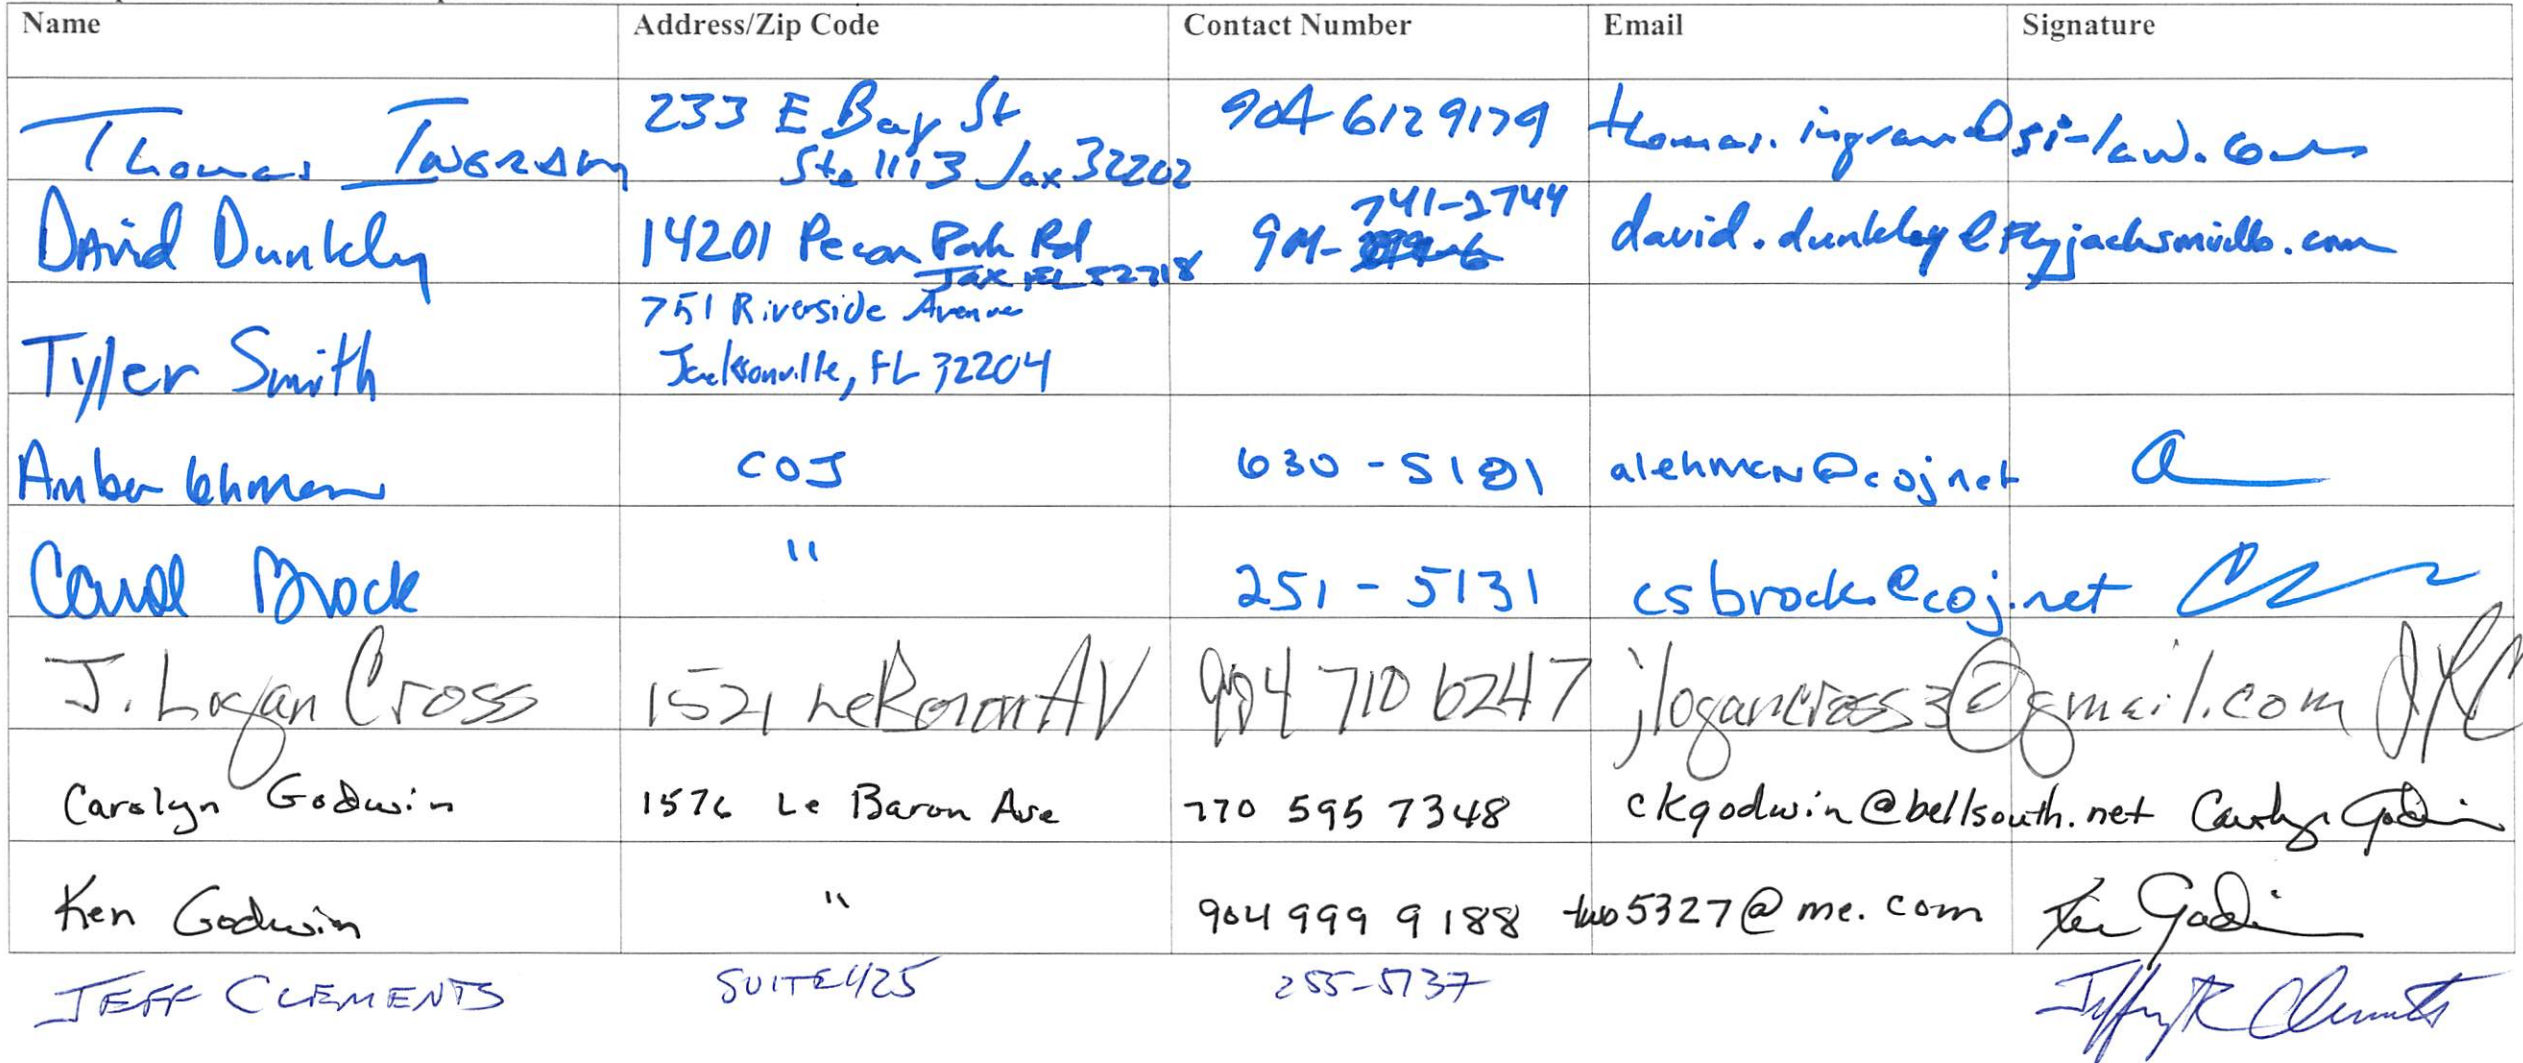 Name Address/Zip Code Contact Number Email Signature
Thomas Ingram 233 E Bay St 904 6129179 thomas.ingram@si-law.com
Ste 1113 Jax 32202
David Dunkley 14201 Pecan Park Rd 904- 741-2744 david.dunkley@flyjacksonville.com
Jax FL 32218
Tyler Smith 751 Riverside Avenue
Jacksonville, FL 32204
Amber Lehman COJ 630-5181 alehman@coj.net
Carol Brock " 251-5131 csbrock@coj.net
J. Logan Cross 1521 LeBaron AV 904 710 6247 jlogancross3@gmail.com JLC
Carolyn Godwin 1576 Le Baron Ave 770 595 7348 ckgodwin@bellsouth.net Carolyn Godwin
Ken Godwin " 904 999 9188 two5327@me.com Ken Godwin
JEFF CLEMENTS SUITE 425 255-5137 Jeffrey R Clements